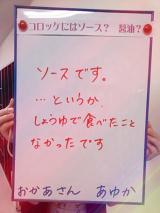 コロッケにはソース？ 醤油？
ソースです。
…というか、
しょうゆで食べたこと
なかったです
おかあさん あゆか